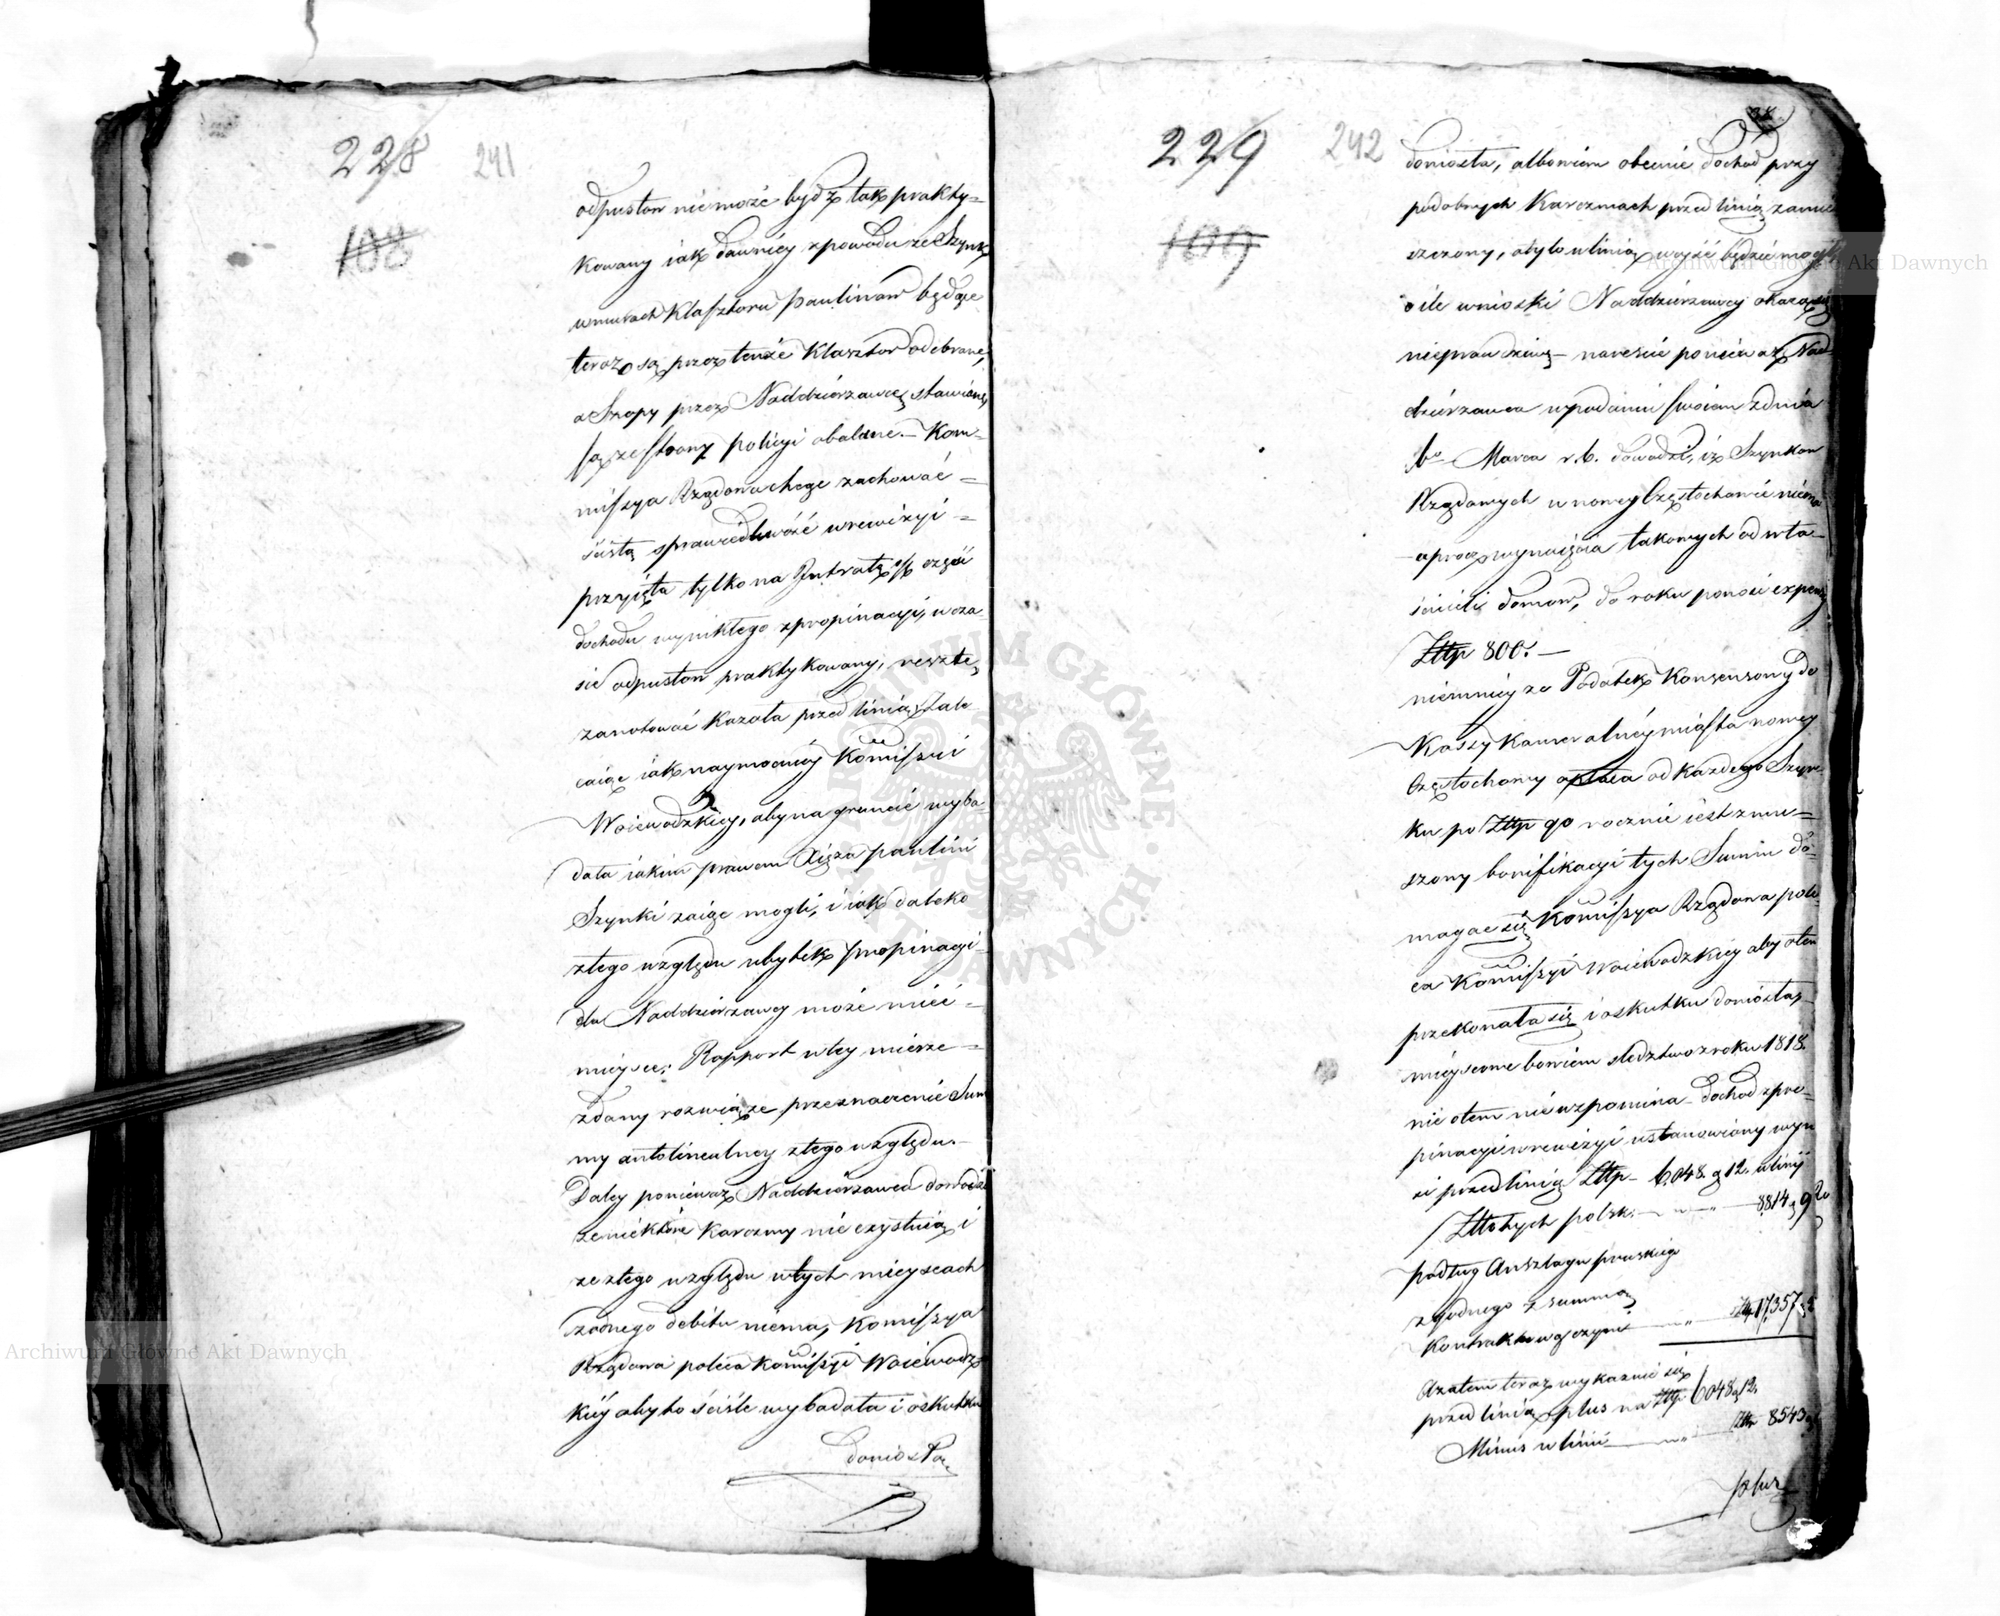 228 241
108
odpustow niemoże bydź tak prakty=
kowany iak dawniey zpowodu że Szynk
wmurach Klasztoru Paulinow będące
teraz są przez tenże Klasztor odebrane,
a Szopy przez Naddzierzawcę stawiane,
są ze strony policyi obalone. – Kom=
missya Rządowa chcąc zachować =
ścisłą sprawiedliwość wrewizyi =
przyięła tylko na Intratę część
dochodu wynikłego zpropinacyi, wcza
sie odpustow praktykowany, resztę
zanotować kazała przed linią, zale
caiąc iak naymocniey Kommissyi
Woiewodzkiey, aby na gruncie wyba=
dała iakim prawem Xięża Paulini
Szynki zaiąc mogli, i iak daleko
ztego względu ubytek propinacyi
dla Naddzierzawcy może mieć =
mieysce. Rapport wtey mierze =
zdany rozwiąże przeznaczenie Sum
my antolinealney ztego względu. –
Daley ponieważ Naddzierzawca dowodzi
że niektóre karczmy nie czystnią i
że ztego względu wtych mieyscach
żadnego debitu niema, Kommissya
Rządowa poleca Kommissyi Woiewodz
kiey aby to ściśle wybadała i oskutku
doniosła
229 242
109
doniosła, albowiem obecnie dochod przy
podobnych Karczmach przed linią zamie
szczony, aby to w linią wejść będzie mogł
o ile wnioski Naddzierzawcy okażą się
nieprawdziwe – nareście ponieważ Nad
dzierzawca wpodaniu swoiem zdnia
6o Marca r.b. dowodzi, iż Szynkow
Rządowych w nowey Częstochowie niema
– a procz wynaięcia takowych od wła=
ścicieli domow, do roku ponosi expens
Złtp 800. –
niemniey że Podatek Konsensowy do
Kassy Kameralney miasta nowey
Częstochowy opłaca od każdego Szyn
ku po Złtp 90 rocznie iest zmu=
szony bonifikacyi tych Summ do=
magać się Kommissya Rządowa pole
ca Kommissyi Woiewodzkiey aby otem
przekonała się i oskutku doniosła,
mieyscowe bowiem sledztwo z roku 1818.
nic otem nie wspomina – dochod zpro=
pinacyi wrewizyi ustanowiony wyn
si przed linią Złtp – 6,048. g 12. w linij
Złłotych polsk. – „ – „ – 8814, g
podług Anszlagu pruskiego
zgodnego z summą
Kontraktową czyni – „ – 17,357 g
Azatem teraz wykazuie się
przed linią plus na Złtp 6048 g 12.
Minus w linii – „ – Złtp 8543
plus
Archiwum Główne Akt Dawnych
Archiwum Główne Akt Dawnych
ARCHIWUM GŁÓWNE AKT DAWNYCH